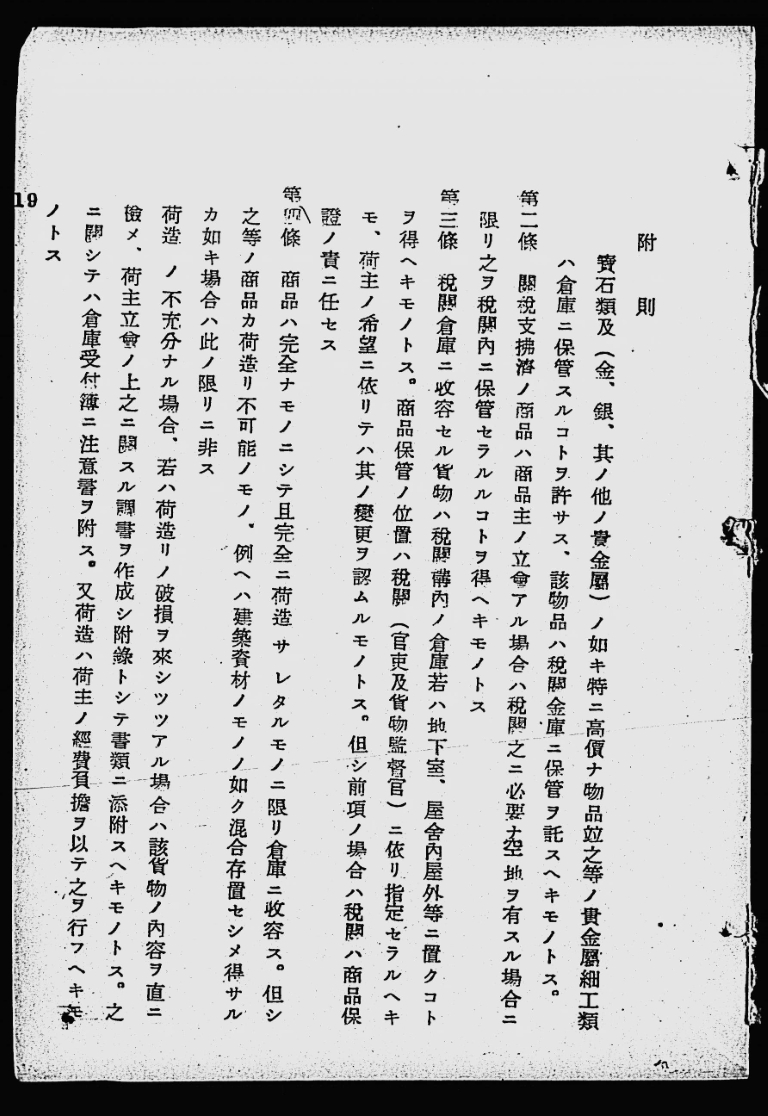 附則
寶石類及（金、銀、其ノ他ノ貴金屬）ノ如キ特ニ高價ナ物品竝之等ノ貴金屬細工類
ハ倉庫ニ保管スルコトヲ許サス、該物品ハ稅關金庫ニ保管ヲ託スヘキモノトス。
第二條　關稅支拂濟ノ商品ハ商品主ノ立會アル場合ハ稅關之ニ必要ナ空地ヲ有スル場合ニ
限リ之ヲ稅關內ニ保管セラルルコトヲ得ヘキモノトス
第三條　稅關倉庫ニ收容セル貨物ハ稅關構內ノ倉庫若ハ地下室、屋舍內屋外等ニ置クコト
ヲ得ヘキモノトス。商品保管ノ位置ハ稅關（官吏及貨物監督官）ニ依リ指定セラルヘキ
モ、荷主ノ希望ニ依リテハ其ノ變更ヲ認ムルモノトス。但シ前項ノ場合ハ稅關ハ商品保
證ノ責ニ任セス
第四條　商品ハ完全ナモノニシテ且完全ニ荷造サレタルモノニ限リ倉庫ニ收容ス。但シ
之等ノ商品カ荷造リ不可能ノモノ、例ヘハ建築資材ノモノノ如ク混合存置セシメ得サル
カ如キ場合ハ此ノ限リニ非ス
荷造ノ不充分ナル場合、若ハ荷造リノ破損ヲ來シツツアル場合ハ該貨物ノ內容ヲ直ニ
檢メ、荷主立會ノ上之ニ關スル調書ヲ作成シ附錄トシテ書類ニ添附スヘキモノトス。之
ニ關シテハ倉庫受付簿ニ注意書ヲ附ス。又荷造ハ荷主ノ經費負擔ヲ以テ之ヲ行フヘキモ
ノトス
19